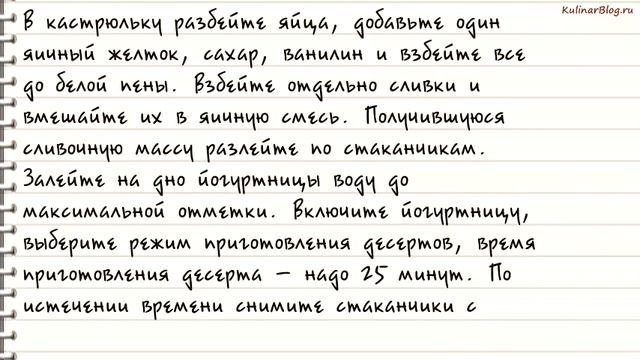 KulinarBlog.ru
В кастрюльку разбейте яйца, добавьте один
яичный желток, сахар, ванилин и взбейте все
до белой пены. Взбейте отдельно сливки и
вмешайте их в яичную смесь. Получившуюся
сливочную массу разлейте по стаканчикам.
Залейте на дно йогуртницы воду до
максимальной отметки. Включите йогуртницу,
выберите режим приготовления десертов, время
приготовления десерта – надо 25 минут. По
истечении времени снимите стаканчики с